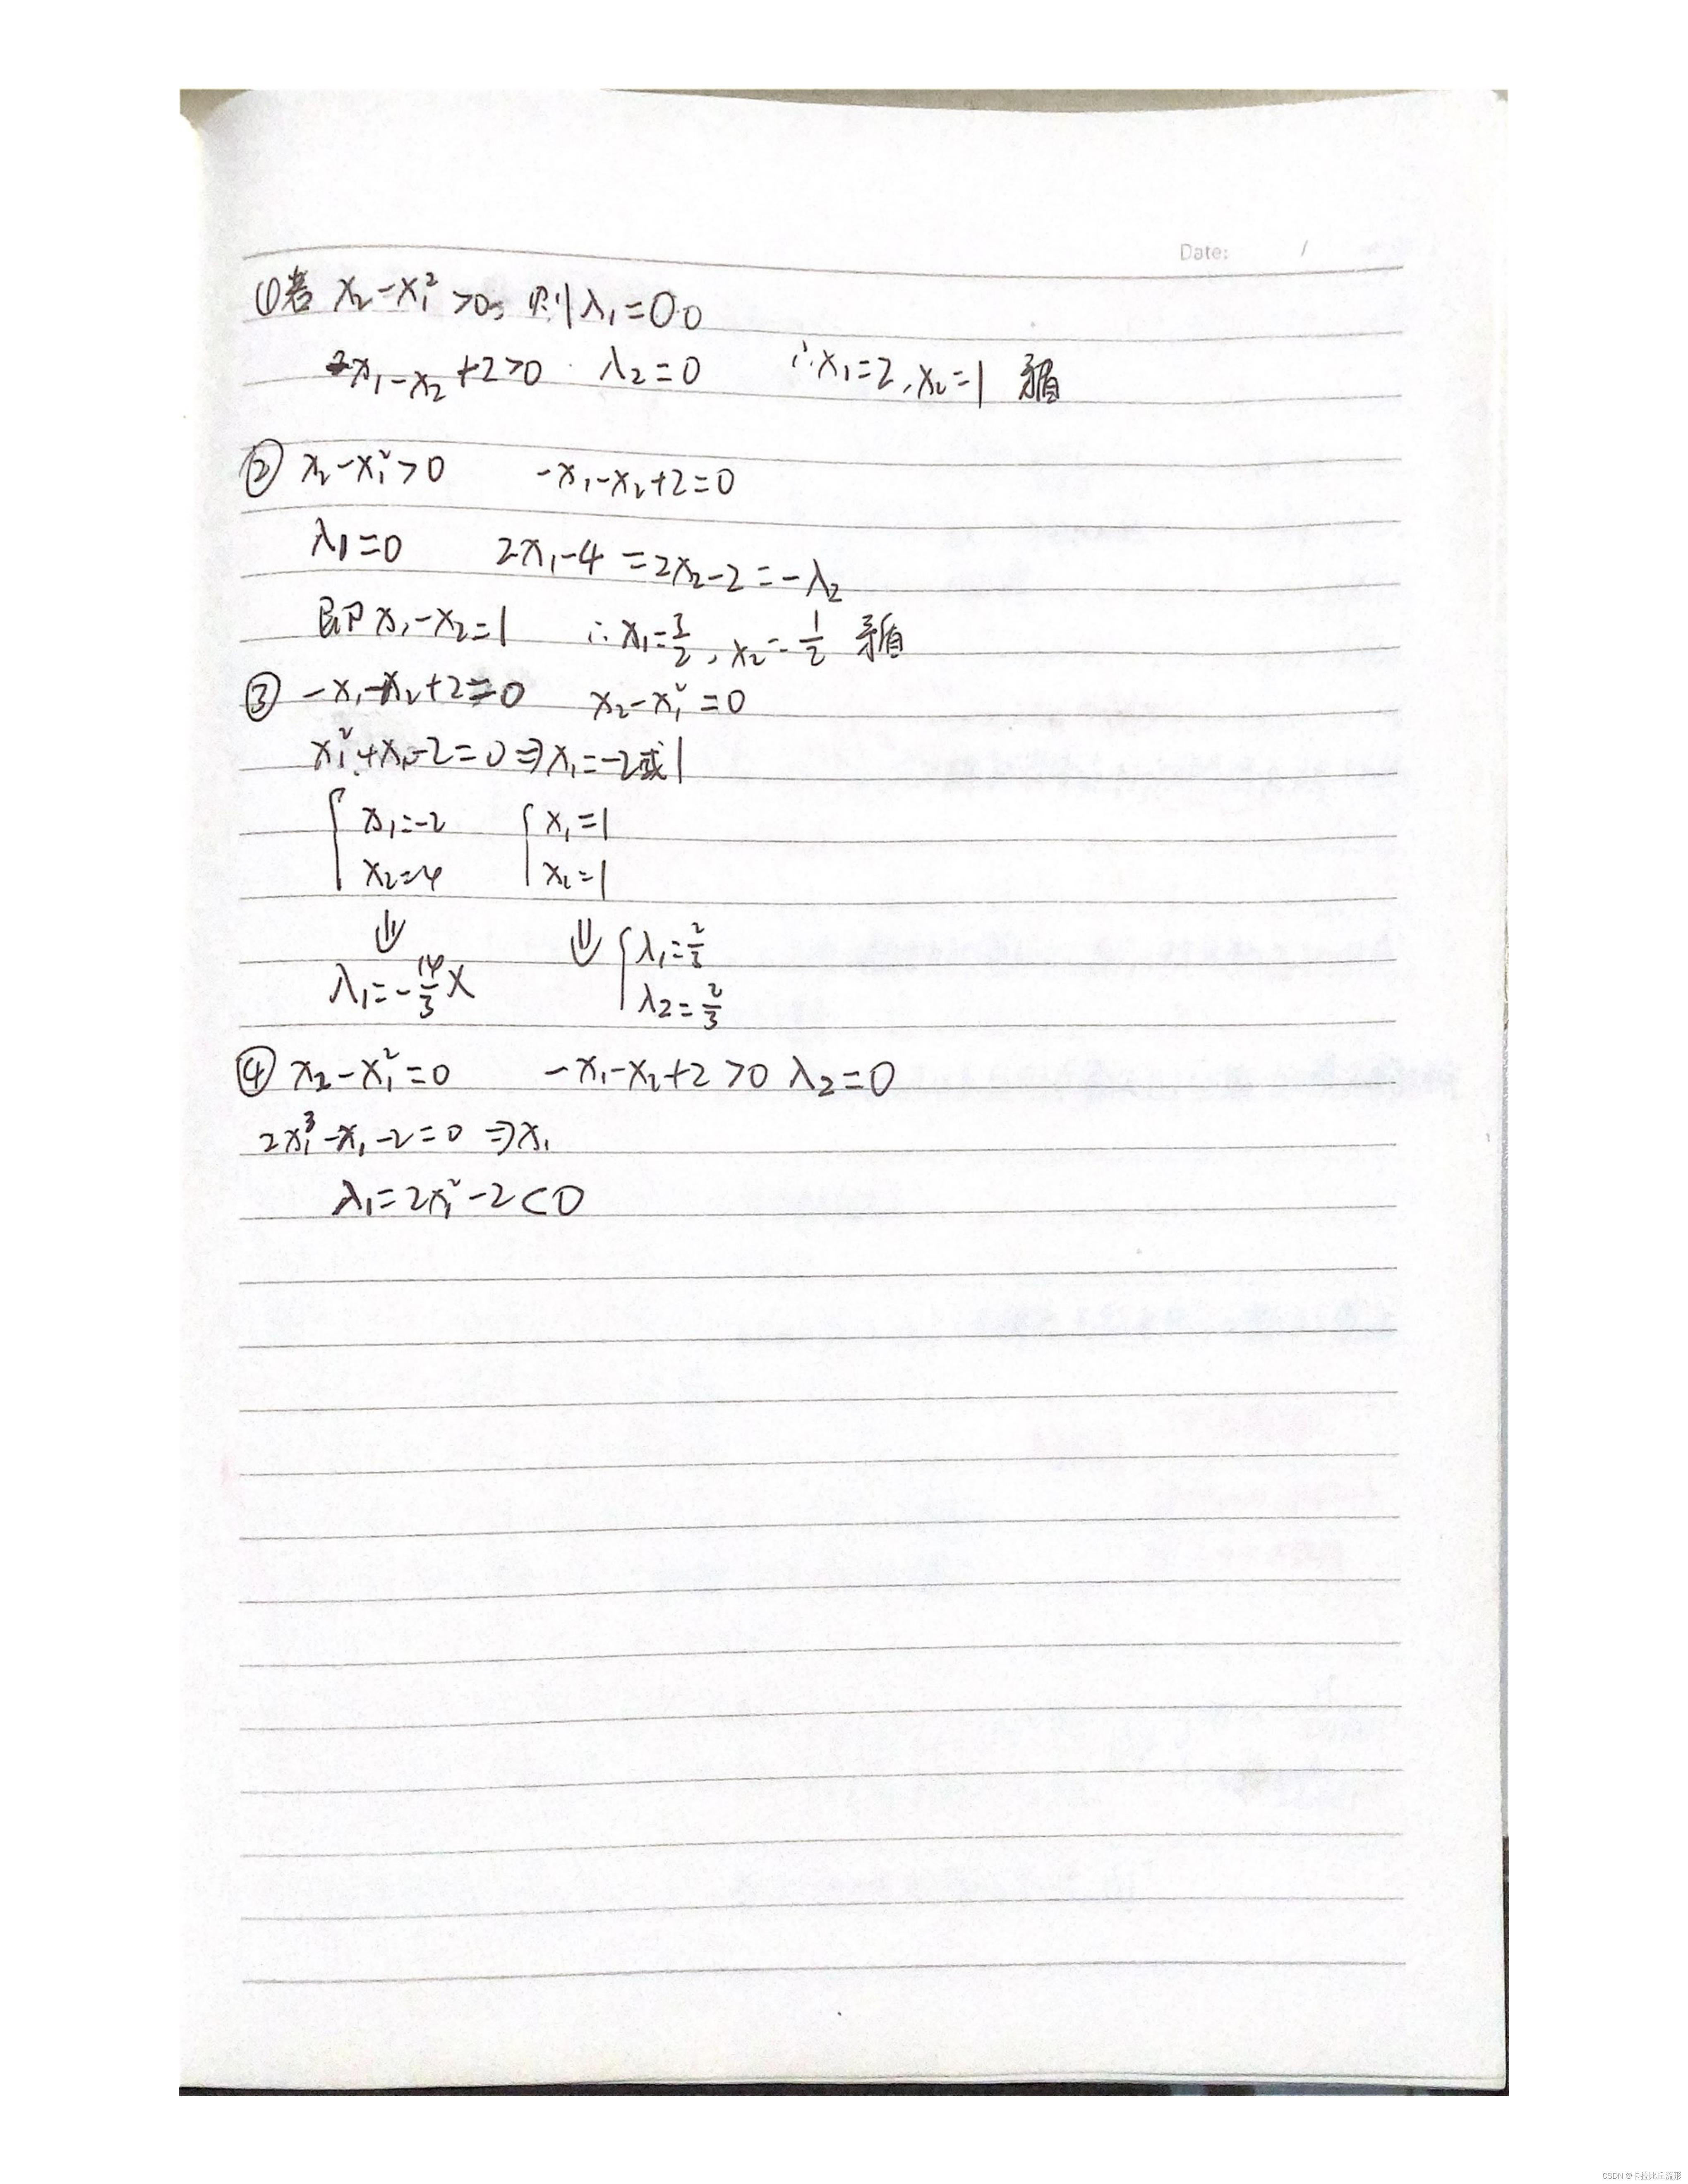 Date: /
①若 x₂-x₁²>0, 则λ₁=0.0
x₁-x₂+2>0 λ₂=0 ∴x₁=2,x₂=1 矛盾
② x₂-x₁²>0 -x₁-x₂+2=0
λ₁=0 2x₁-4=2x₂-2=-λ₂
即 x₁-x₂=1 ∴x₁=3/2, x₂=1/2 矛盾
③ -x₁-x₂+2=0 x₂-x₁²=0
x₁²+x₁-2=0⇒x₁=-2或1
{x₁=-2 {x₁=1
x₂=4 x₂=1
⇓ ⇓ {λ₁=2/3
λ₁=-14/3 X λ₂=2/3
④ x₂-x₁²=0 -x₁-x₂+2>0 λ₂=0
2x₁³-x₁-2=0 ⇒x₁
λ₁=2x₁²-2<0
CSDN @卡拉比丘流形